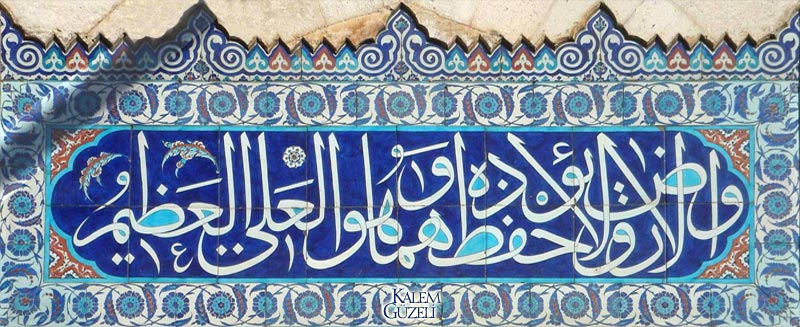 والارض ولا يؤده حفظهما وهو العلي العظيم
KALEM
GÜZELİ